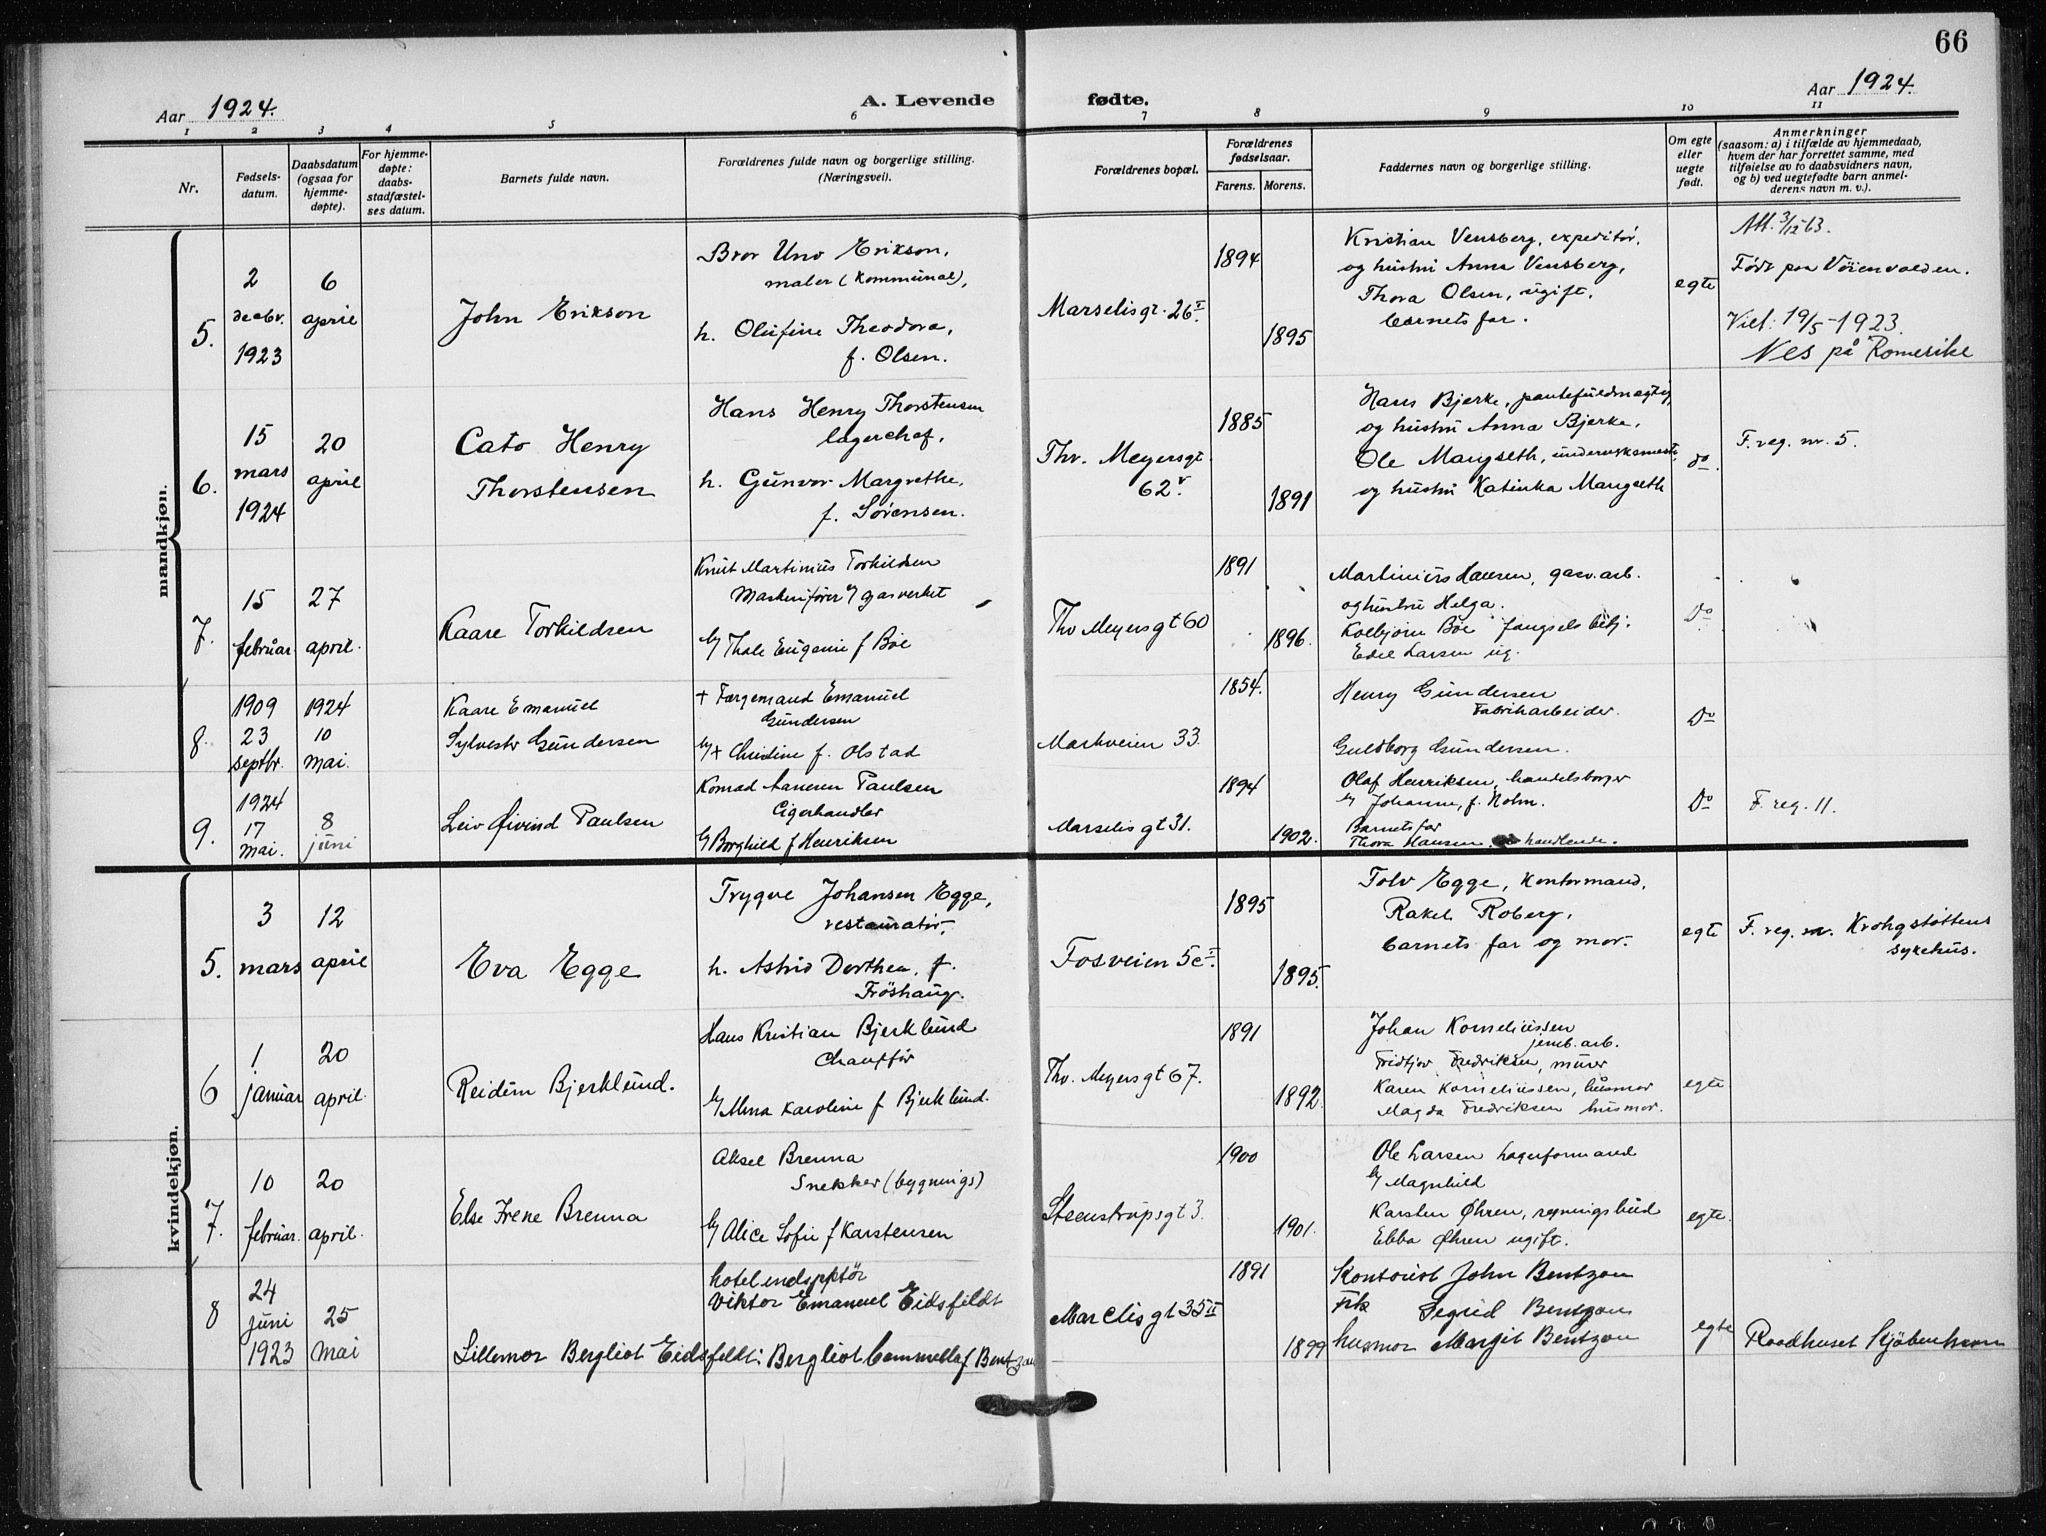 66
Aar 1924.
A. Levende fødte.
Aar 1924.
1 2 3 4 5 6 7 8 9 10 11
Nr.
Fødsels-
datum.
Daabsdatum
(ogsaa for
hjemme-
døpte).
For hjemme-
døpte:
daabs-
stadfæstel-
ses datum.
Barnets fulde navn.
Forældrenes fulde navn og borgerlige stilling.
(Næringsvei).
Forældrenes bopæl.
Forældrenes
fødselsaar.
Farens. Morens.
Faddernes navn og borgerlige stilling.
Om egte
eller
uegte
født.
Anmerkninger
(saasom: a) i tilfælde av hjemmedaab,
hvem der har forrettet samme, med
tilføielse av to daabsvidners navn,
og b) ved uegtefødte barn anmel-
derens navn m. v.).
mandkjøn.
5.
2
decbr.
1923
6
april
John Erikson
Bror Uno Erikson,
maler (kommunal),
h. Olufine Theodora,
f. Olsen.
Marselisgt. 26 I.
1894
1895
Kristian Vensberg, expeditør,
og hustru Anna Vensberg,
Thora Olsen, ugift.
barnets far.
egte
Att. 3/12 63.
Født paa Vøienvolden.
Viet: 19/5-1923.
Nes på Romerike
6.
15
mars
1924
20
april
Cato Henry
Thorstensen
Hans Henry Thorstensen
lagerchef,
h. Gunvor Margrethe,
f. Sørensen.
Thv. Meyersgt
62 V.
1885
1891
Hans Bjerke, pantefuldmægtig,
og hustru Anna Bjerke,
Ole Mangseth,
og hustru Katinka Mangseth
do.
F. reg. nr. 5.
7.
15
februar.
27
april.
Kaare Torkildsen
Knut Martinius Torkildsen
Maskinfører v/ gasverket
h/ Thale Eugenie f Bøe
Thv Meyersgt 60
1891
1896.
Martinius Hansen, gasv. arb.
og hustru Helga.
Kolbjørn Bøe fængsels betj.
Edel Larsen ug.
Do
8.
1909
23
septbr.
1924
10
mai.
Kaare Emanuel
Sylvester Gundersen
+ Færgemand Emanuel
Gundersen
h/+ Christine f. Olstad
Markveien 33.
1854.
Henry Gundersen
Fabrikarbeider.
Guldborg Gundersen.
Do
9.
1924
17
mai.
8
juni
Leiv Øivind Paulsen
Konrad Paulsen
Cigarhandler
h/ Borghild f Henriksen
Marselisgt 31.
1894
1902.
Olaf Henriksen, handelsborger
h/ Johanne, f. Holm.
Barnets far
Thora Hansen, handlende.
Do
F. reg. 11.
kvindekjøn.
5.
3
mars
12
april
Eva Egge
Trygve Johansen Egge,
restauratør,
h. Astrid Dorthea, f.
Frøshaug.
Fosveien 5c I.
1895
1895.
Tolv Egge, kontormand,
Rakel Roberg,
barnets far og mor.
egte
F. reg. nr. Krohgstøttens
sykehus.
6
1
januar
20
april.
Reidun Bjerklund.
Hans Kristian Bjerklund
Chauffør
h/ Mina Karoline f Bjerklund.
Thv. Meyersgt 67.
1891
1892.
Johan Korneliussen
jernb. arb.
Fridtjov Fredriksen, murer
Karen Korneliussen, husmor
Magda Fredriksen husmor.
egte
7.
10
februar.
20
april.
Else Irene Brenna
Aksel Brenna
Snekker (bygnings)
h/ Alice Sofie f Karstensen
Steenstrupsgt 3.
1900
1901.
Ole Larsen lagerformand
h/ Magnhild
Karsten Øhren, regningsbud
Ebba Øhren ugift.
egte.
8
24
juni
1923
25
mai
Lillemor Bergliot Eidsfeldt.
hotelindspktør
Viktor Emanuel Eidsfeldt
Bergliot Commella f Bentzon
Marcelisgt 35 II
1891
1899
Kontorist John Bentzon
Frk Segrid Bentzon
husmor Margit Bentzon
egte
Raadhuset Kjøbenhavn